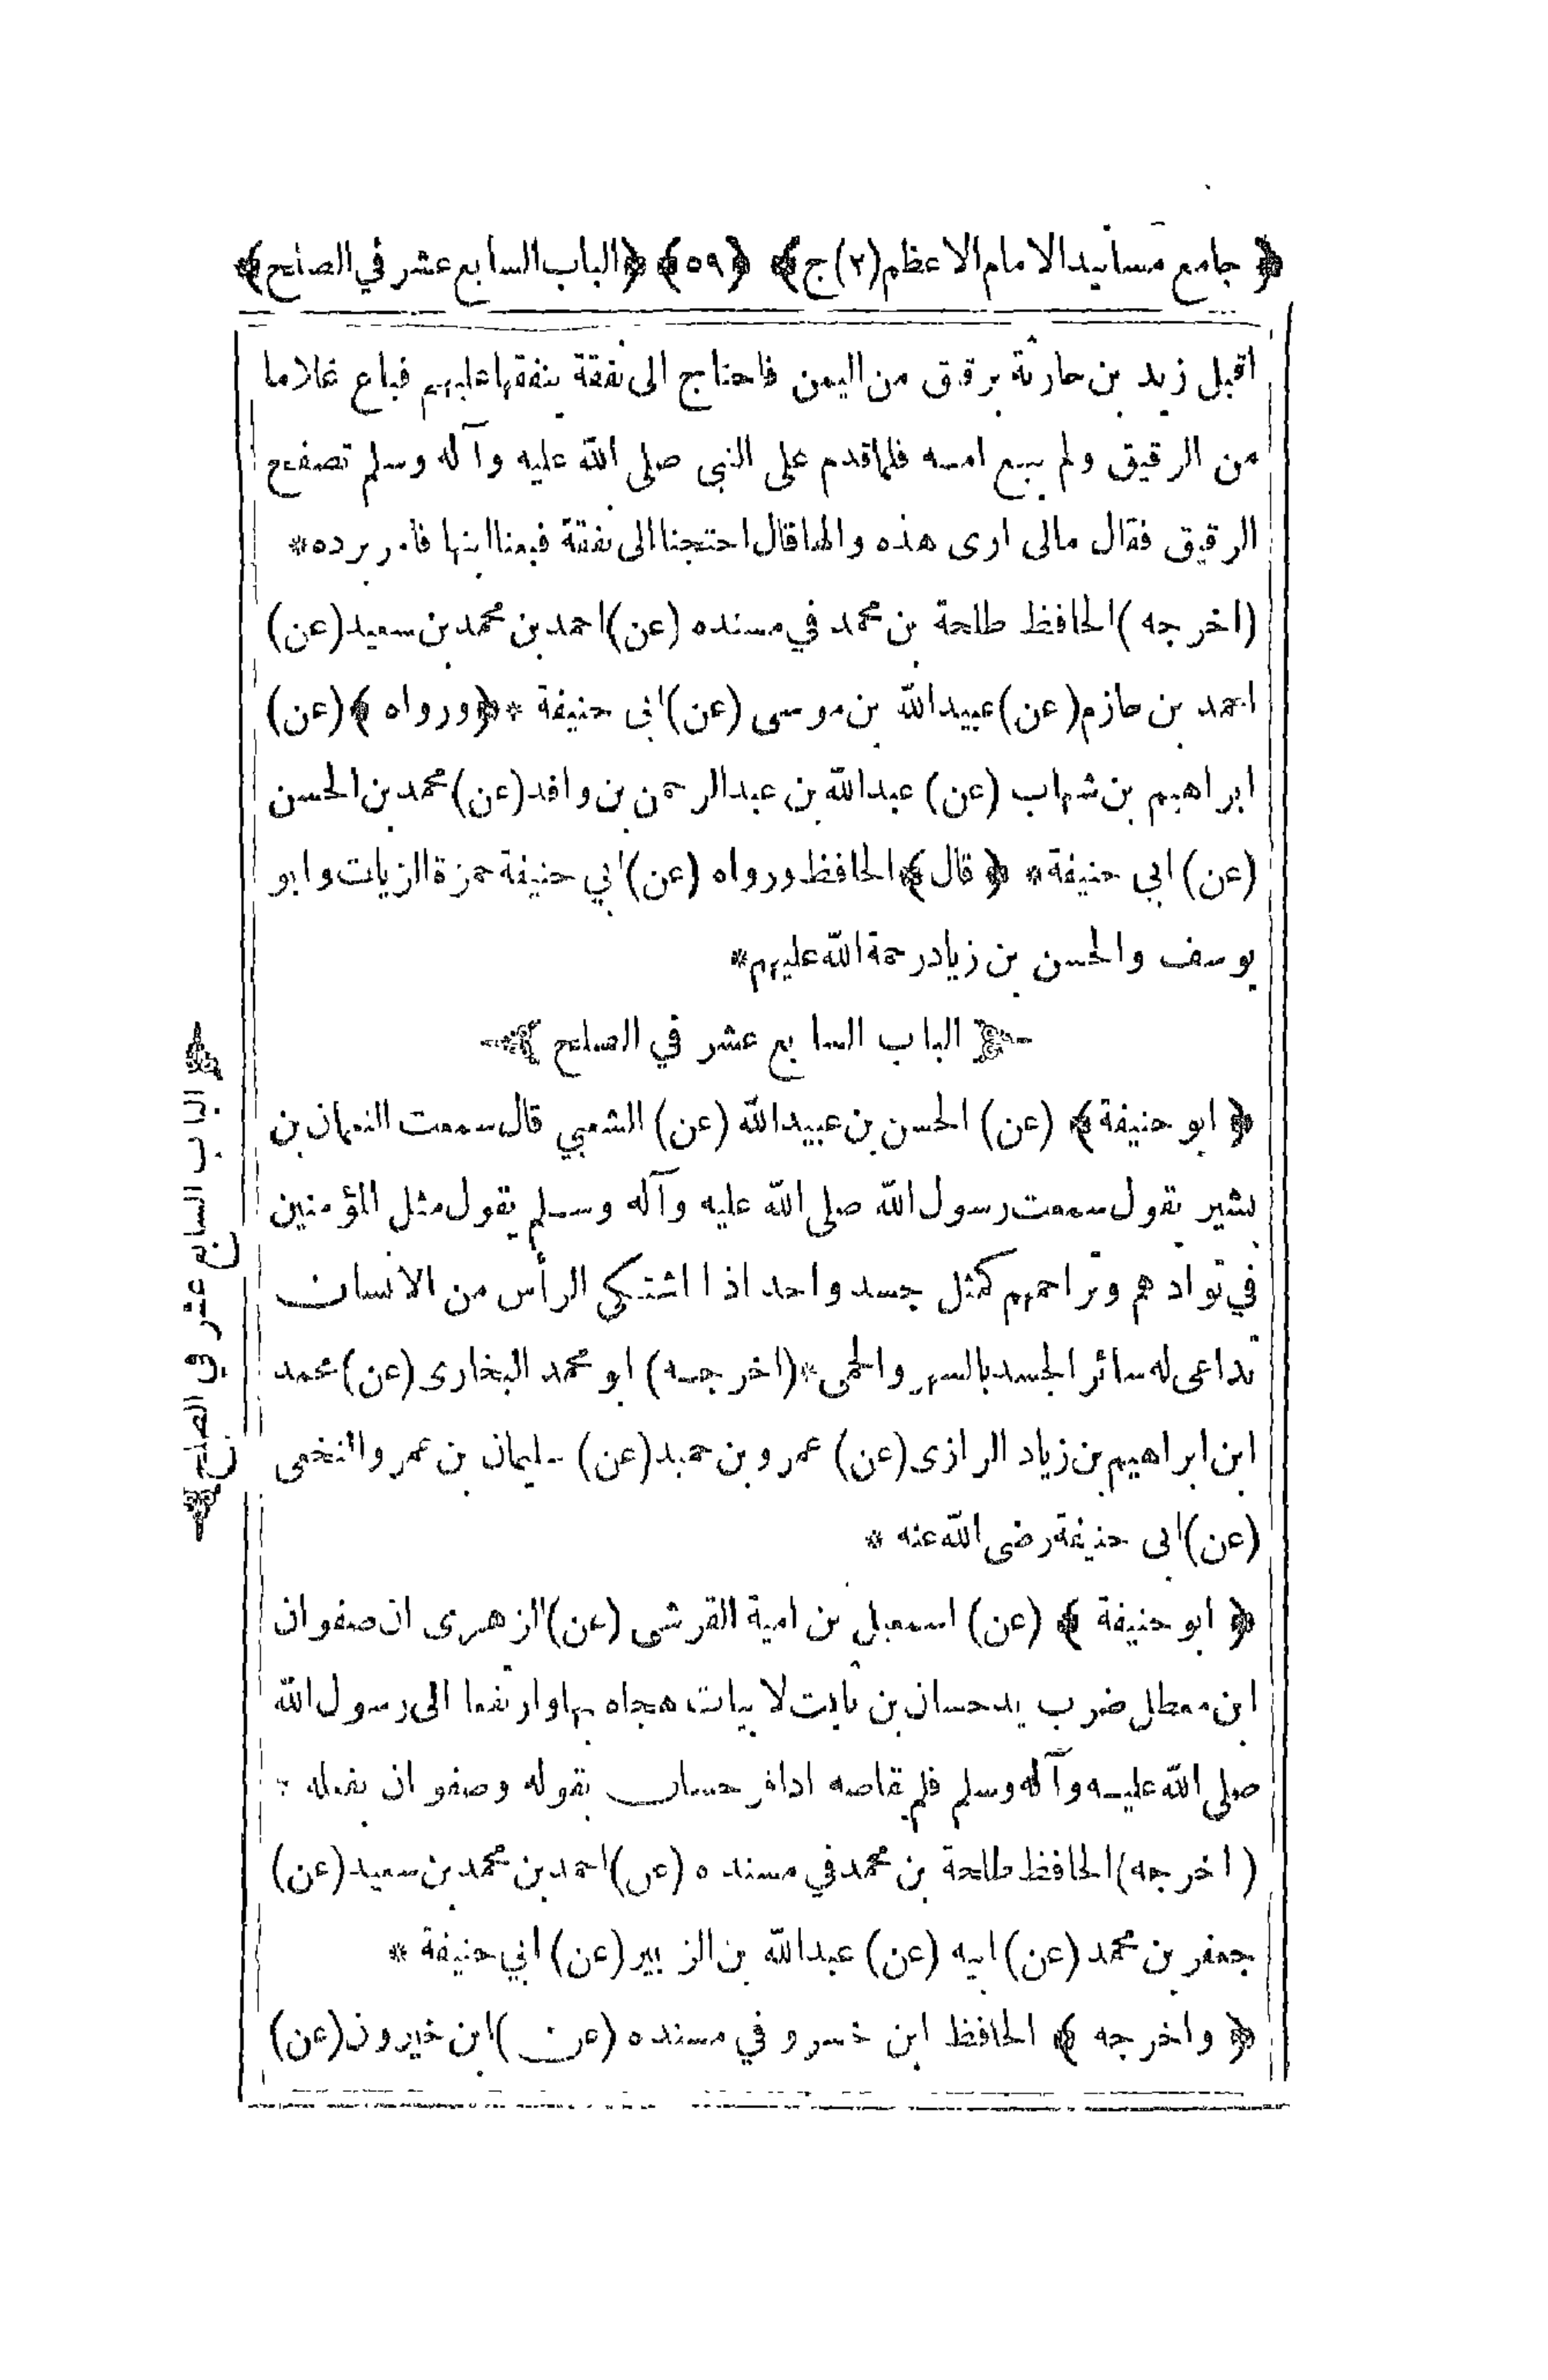 ﴿ جامع مسانيد الامام الاعظم (٢) ج ﴾ ﴿ ٥٩ ﴾ ﴿ الباب السابع عشر في الصلح ﴾
اقبل زيد بن حارثة برقيق من اليمن فاحتاج الى نفقة ينفقها عليهم فباع غلاما
من الرقيق ولم يبع امه فلما قدم على النبى صلى الله عليه وآله وسلم تصفح
الرقيق فقال مالى ارى هذه والها قال احتجنا الى نفقة فبعنا ابنها فامر برده*
(اخرجه) الحافظ طلحة بن محمد في مسنده (عن) احمد بن محمد بن سعيد (عن)
احمد بن حازم (عن) عبيد الله بن موسى (عن) ابى حنيفة * ﴿ ورواه ﴾ (عن)
ابراهيم بن شهاب (عن) عبد الله بن عبد الرحمن بن واقد (عن) محمد بن الحسن
(عن) ابى حنيفة * ﴿ قال ﴾ الحافظ ورواه (عن) ابي حنيفة حمزة الزيات وابو
يوسف والحسن بن زياد رحمة الله عليهم*
﴿ الباب السابع عشر في الصلح ﴾
﴿ ابو حنيفة ﴾ (عن) الحسن بن عبيد الله (عن) الشعبي قال سمعت النعمان بن
بشير يقول سمعت رسول الله صلى الله عليه وآله وسلم يقول مثل المؤمنين
في توادهم وتراحمهم كمثل جسد واحد اذا اشتكى الرأس من الانسان
تداعى له سائر الجسد بالسهر والحمى * (اخرجه) ابو محمد البخارى (عن) محمد
ابن ابراهيم بن زياد الرازى (عن) عمرو بن حميد (عن) سليمان بن عمرو النخعى
(عن) ابى حنيفة رضى الله عنه *
﴿ ابو حنيفة ﴾ (عن) اسمعيل بن امية القرشى (عن) الزهرى ان صفوان
ابن معطل ضرب يد حسان بن ثابت لابيات هجاه بها وارتفعا الى رسول الله
صلى الله عليه وآله وسلم فلم يقاصه اذا قر حسان بقوله وصفوان بفعله *
(اخرجه) الحافظ طلحة بن محمد في مسنده (عن) احمد بن محمد بن سعيد (عن)
جعفر بن محمد (عن) ابيه (عن) عبد الله بن الزبير (عن) ابي حنيفة *
﴿ واخرجه ﴾ الحافظ ابن خسرو في مسنده (عن) ابن خيرون (عن)
﴿ الباب السابع عشر في الصلح ﴾